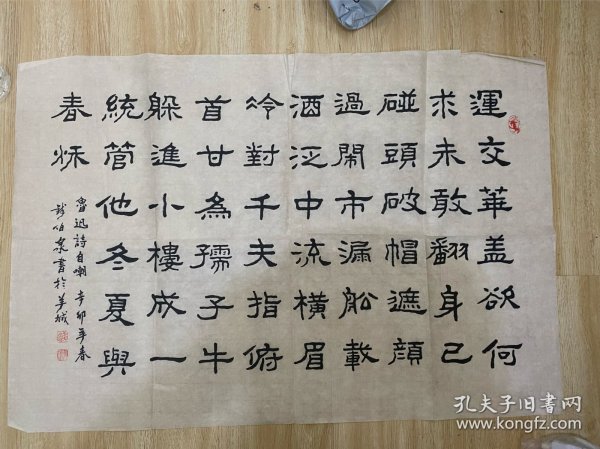 運交華盖欲何
求未敢翻身已
碰頭破帽遮顔
過鬧市漏舩載
酒泛中流橫眉
冷對千夫指俯
首甘為孺子牛
躲進小樓成一
統管他冬夏與
春秋
魯迅詩自嘲 辛卯年春
伯泉書於羊城
孔夫子旧書网
www.kongfz.com